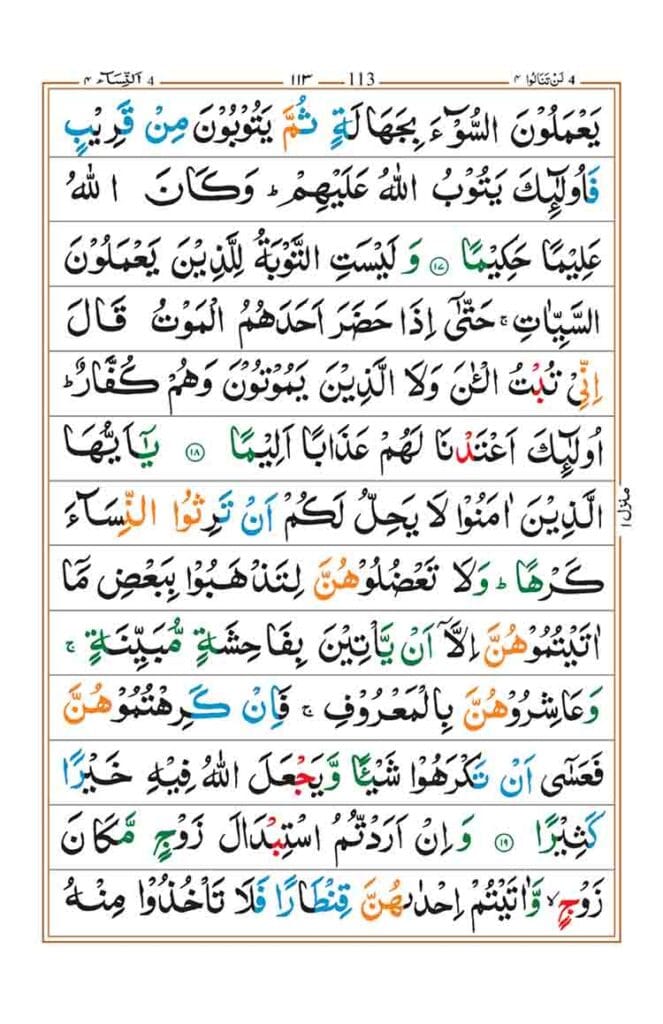 لَنْ تَنَالُوا ۴ 4 113 ۱۱۳ اَلنِّسَآء ۴ 4
يَعْمَلُوْنَ السُّوْٓءَ بِجَهَالَةٍ ثُمَّ يَتُوْبُوْنَ مِنْ قَرِيْبٍ
فَاُولٰٓئِكَ يَتُوْبُ اللّٰهُ عَلَيْهِمْ ؕ وَكَانَ اللّٰهُ
عَلِيْمًا حَكِيْمًا ۱۷ وَ لَيْسَتِ التَّوْبَةُ لِلَّذِيْنَ يَعْمَلُوْنَ
السَّيِّاٰتِ ۚ حَتّٰىٓ اِذَا حَضَرَ اَحَدَهُمُ الْمَوْتُ قَالَ
اِنِّىْ تُبْتُ الْـٰٔنَ وَلَا الَّذِيْنَ يَمُوْتُوْنَ وَهُمْ كُفَّارٌ ؕ
اُولٰٓئِكَ اَعْتَدْنَا لَهُمْ عَذَابًا اَلِيْمًا ۱۸ يٰٓاَيُّهَا
الَّذِيْنَ اٰمَنُوْا لَا يَحِلُّ لَكُمْ اَنْ تَرِثُوا النِّسَآءَ
كَرْهًا ؕ وَلَا تَعْضُلُوْهُنَّ لِتَذْهَبُوْا بِبَعْضِ مَآ
اٰتَيْتُمُوْهُنَّ اِلَّآ اَنْ يَّاْتِيْنَ بِفَاحِشَةٍ مُّبَيِّنَةٍ ۚ
وَعَاشِرُوْهُنَّ بِالْمَعْرُوْفِ ۚ فَاِنْ كَرِهْتُمُوْهُنَّ
فَعَسٰٓى اَنْ تَكْرَهُوْا شَيْـًٔا وَّيَجْعَلَ اللّٰهُ فِيْهِ خَيْرًا
كَثِيْرًا ۱۹ وَاِنْ اَرَدْتُّمُ اسْتِبْدَالَ زَوْجٍ مَّكَانَ
زَوْجٍ ۙ وَّاٰتَيْتُمْ اِحْدٰىهُنَّ قِنْطَارًا فَلَا تَاْخُذُوْا مِنْهُ
منزل ۱